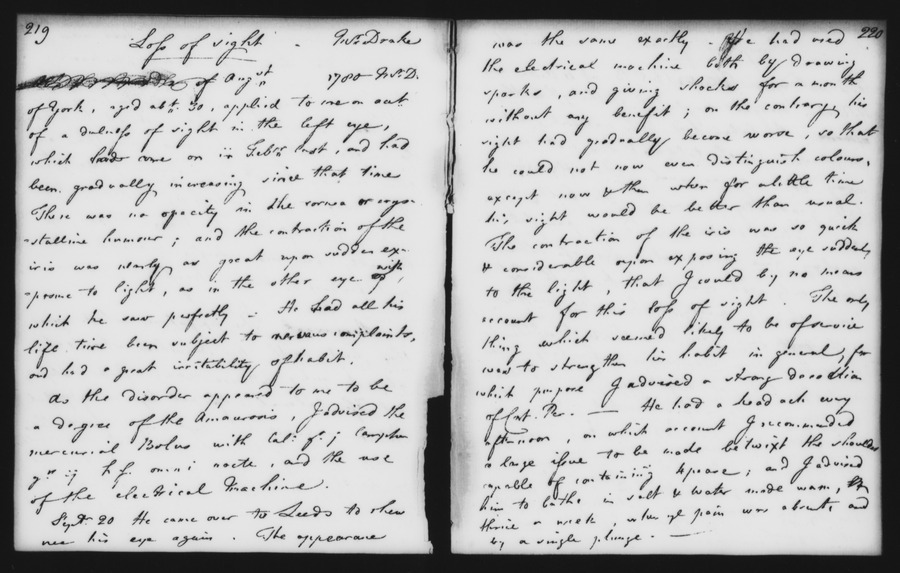 219
Loss of sight. Mr. Drake
of Augst. 1780 Mr. D.
of York, aged abt. 30, applied to me on acct
of a dulness of sight in the left eye,
which had come on in Feb. last, and had
been gradually increasing since that time
There was no opacity in the cornea or crys-
-stalline humour; and the contraction of the
iris was nearly as great upon sudden ex-
-posure to light, as in the other eye with
which he saw perfectly - He had all his
life time been subject to nervous complaints,
and had a great irritability of habit.
As the disorder appeared to me to be
a degree of the Amaurosis, I advised the
mercurial Bolus with Cal: gr. j Camphor
gr. iij h. s. omni nocte, and the use
of the electrical Machine.
Septr. 20 He came over to Leeds to shew
me his eye again. The appearance
220
was the same exactly. He had used
the electrical machine both by drawing
sparks, and giving shocks for a month
without any benefit; on the contrary his
sight had gradually become worse, so that
he could not now even distinguish colours,
except now & then when for a little time
his sight would be better than usual.
The contraction of the iris was so quick
& considerable upon exposing the eye suddenly
to the light, that I could by no means
account for this loss of sight. The only
thing which seemed likely to be of service
was to strengthen his habit in general, for
which purpose I advised a strong decoction
of Cort. Per. — He had a head ach every
afternoon, on which account I recommended
a large issue to be made betwixt the shoulders
capable of containing 4 pease; and I advised
him to bathe in salt & water made warm,
thrice a week, when ye pain was absent, and
by a single plunge. —